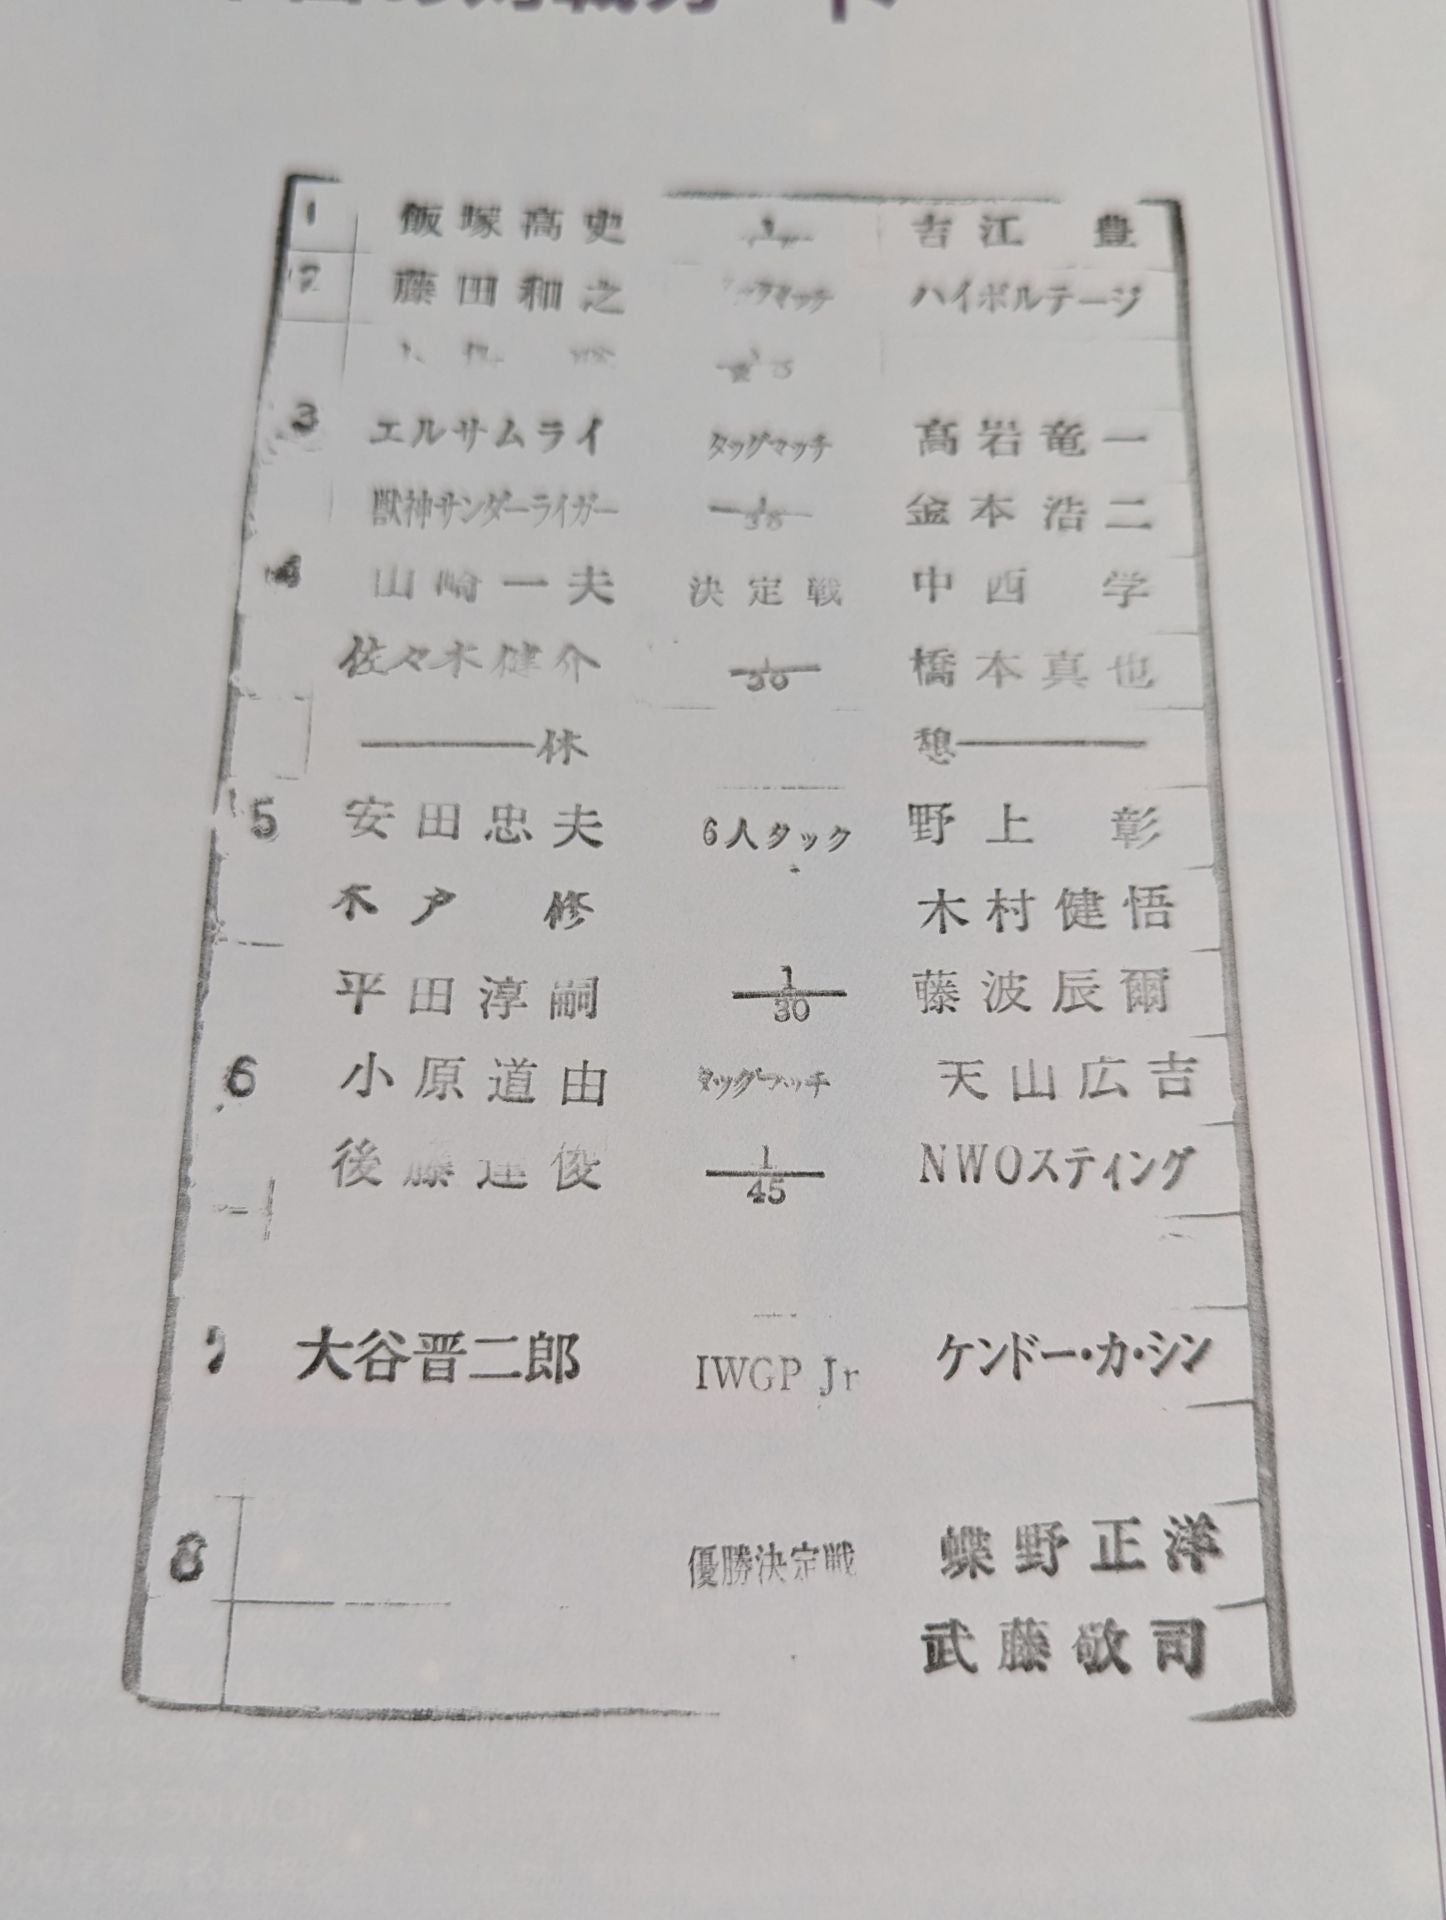 1 飯塚高史 1 吉江 豊
2 藤田和之 ハイボルテージ
3 エルサムライ タッグマッチ 高岩竜一
獣神サンダーライガー 1/30 金本浩二
4 山崎一夫 決定戦 中西 学
佐々木健介 1/30 橋本真也
休 憩
5 安田忠夫 6人タック 野上 彰
木戸 修 木村健悟
平田淳嗣 1/30 藤波辰爾
6 小原道由 タッグマッチ 天山広吉
後藤達俊 1/45 NWOスティング
7 大谷晋二郎 IWGP Jr ケンドー・カ・シン
8 優勝決定戦 蝶野正洋
武藤敬司